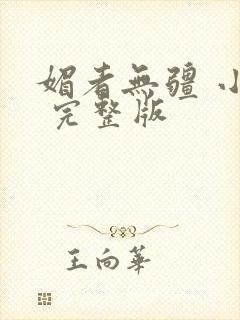 媚者無疆 小
完整版
王向華